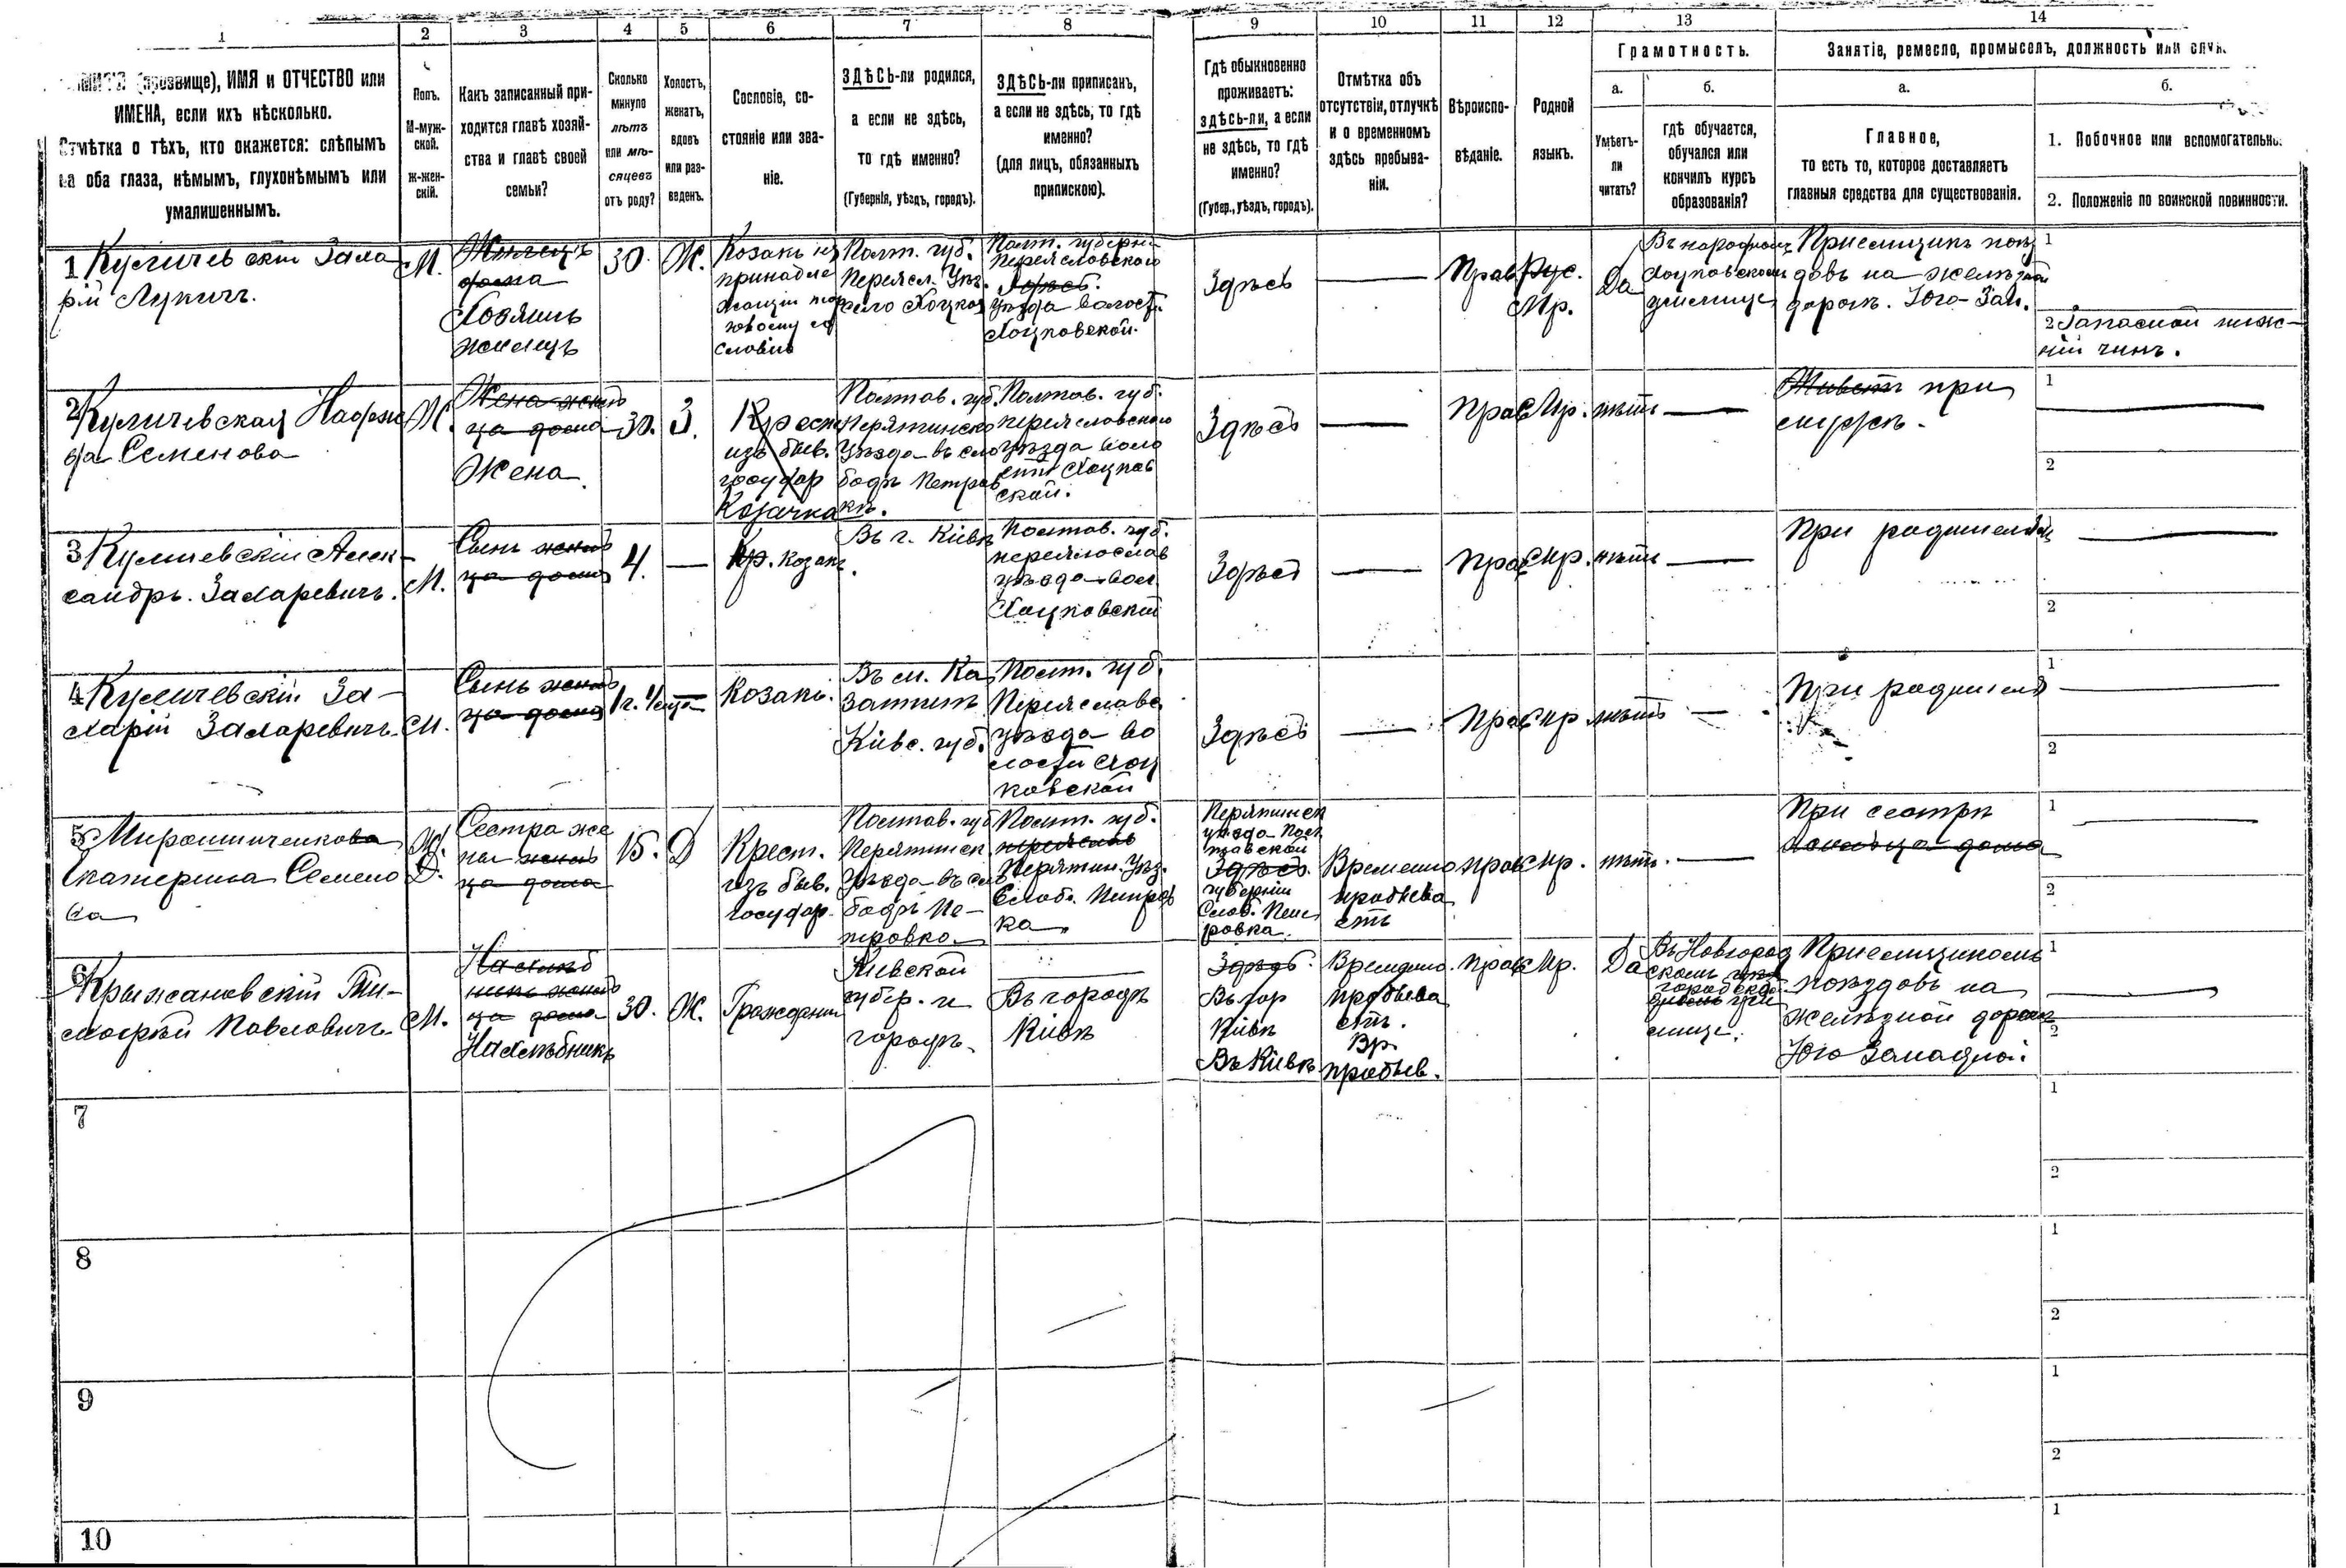 1 2 3 4 5 6 7 8 9 10 11 12 13 14
(прозвище), ИМЯ и ОТЧЕСТВО или
ИМЕНА, если ихъ нѣсколько.
Отмѣтка о тѣхъ, кто окажется: слѣпымъ
на оба глаза, нѣмымъ, глухонѣмымъ или
умалишеннымъ.
Полъ.
М-муж-
ской.
Ж-жен-
скій.
Какъ записанный при-
ходится главѣ хозяй-
ства и главѣ своей
семьи?
Сколько
минуло
лѣтъ
или мѣ-
сяцевъ
отъ роду?
Холостъ,
женатъ,
вдовъ
или раз-
веденъ.
Сословіе, со-
стояніе или зва-
ніе.
ЗДѢСЬ-ли родился,
а если не здѣсь,
то гдѣ именно?
(Губернія, уѣздъ, городъ).
ЗДѢСЬ-ли приписанъ,
а если не здѣсь, то гдѣ
именно?
(для лицъ, обязанныхъ
припискою).
Гдѣ обыкновенно
проживаетъ:
здѣсь-ли, а если
не здѣсь, то гдѣ
именно?
(Губер., уѣздъ, городъ).
Отмѣтка объ
отсутствіи, отлучкѣ
и о временномъ
здѣсь пребыва-
ніи.
Вѣроиспо-
вѣданіе.
Родной
языкъ.
Грамотность.
а.
Умѣетъ-
ли
читать?
б.
гдѣ обучается,
обучался или
кончилъ курсъ
образованія?
Занятіе, ремесло, промыселъ, должность или служ.
а.
Главное,
то есть то, которое доставляетъ
главныя средства для существованія.
б.
1. Побочное или вспомогательно:
2. Положеніе по воинской повинности.
1 Куличевскій Заха
рій Лукичъ.
М.
Жилецъ
дома
Хозяинъ
жилецъ
30.
Ж.
Козакъ из
принадле
жащій
сословію
Полт. губ.
Переясл. Уѣз.
село Хоцко
Полт. губерніи
Переясловского
Здѣсь.
уѣзда волост.
Хоцковской.
Здѣсь
—
Прав
Рус.
Мр.
Да
Въ народномъ
Хоцковскомъ
училище
Приемщикъ поѣз
довъ на желѣзной
дорогѣ. Юго-Зап.
1
2 Запасной ниж-
ній чинъ.
2 Куличевская
Семенова
Ж.
Жена жиль
ца дома
Жена
30.
З.
Крест
изъ быв.
государ
Козачка
Полтав. губ.
Пирятинско
Уѣзда въ сло
бодѣ Петров
кѣ.
Полтав. губ.
переясловского
уѣзда воло
сти Хоцков
ской.
Здѣсь
—
Прав
Мр.
нѣтъ
—
Живетъ при
мужѣ.
1
2
3 Куличевскій Алек-
сандръ. Захаревичъ.
М.
Сынъ жиль
ца дома
4.
—
Кр. Козакъ
Въ г. Кіевѣ.
Полтав. губ.
переяслав
уѣзда вол
Хоцковской
Здѣсь
—
Прав
Мр.
нѣтъ
—
При родителяхъ
2
4 Куличевскій За-
харій Захаревичъ.
М.
Сынъ жиль
ца дома
—
Козакъ.
Въ м. Ка
затинѣ
Кіевс. губ.
Полт. губ.
Переяславс
уѣзда во
лости Хоц
ковской
Здѣсь
—
Прав
Мр
нѣтъ
—
При родителяхъ
1
2
5 Мирошниченкова
Екатерина Семено
ва
Ж.
Д.
Сестра же
ны жиль
ца дома
15.
Д
Крест.
изъ быв.
государ.
Полтав. губ
Пирятинск
Уѣзда въ сло
бодѣ Пе-
тровка
Полт. губ.
переяслав
Пирятин. Уѣз.
Слоб. Петров
ка
Пирятинск
уѣзда Пол
тавской
Здѣсь.
губерніи
Слоб. Пет
ровка.
Временно
пробыва
етъ
прав
Мр.
нѣтъ.
—
При сестрѣ
дома
1
2
6 Крыжановскій Ти-
мофѣй Павловичъ.
М.
Нахлѣб
никъ жиль
ца дома
Нахлѣбникъ
30.
Ж.
Гражданин
Кіевской
губер. и
городъ
Въ городѣ
Кіевѣ
Здѣсь.
Въ гор
Кіевѣ
Въ Кіевѣ
Временно.
пробыва
етъ.
Вр.
пробыв.
прав
Мр.
Да
Въ Новгород
скомъ
городско
учи
лище.
Приемщикомъ
поѣздовъ на
желѣзной дорогѣ
Юго Западной.
1
2
7
1
2
8
1
2
9
1
2
10
1